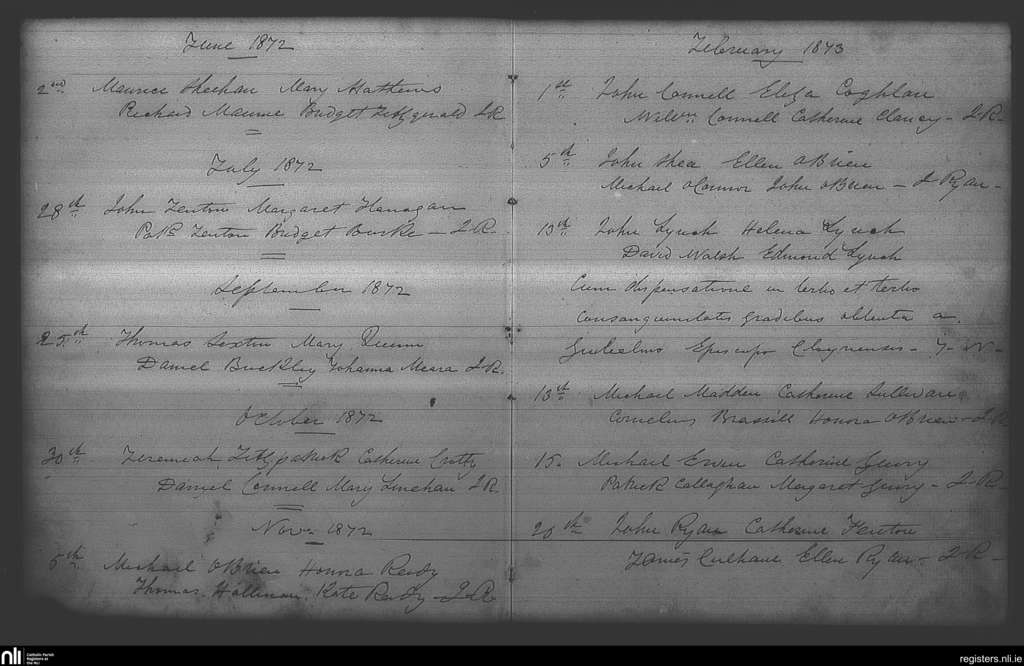 June 1872
2nd Maurice Sheehan Mary Mathews
Richard Maume Bridget Fitzgerald J.R.
July 1872
28th John Fenton Margaret Flanagan
Patk Fenton Bridget Burke - J.R.
September 1872
25th Thomas Sexton Mary Quinn
Daniel Buckley Johanna Meara J.R.
October 1872
30th Jeremiah Fitzpatrick Catherine Crotty
Daniel Connell Mary Linehan J.R.
Novr 1872
5th Michael O'Brien Honora Reidy
Thomas Hallinan Kate Reidy - J.R.
February 1873
1st John Connell Eliza Coghlan
Willm Connell Catherine Clancy - J.R.
5th John Shea Ellen O'Brien
Michael O'Connor John O'Brien - J Ryan -
13th John Lynch Helena Lynch
David Walsh Edmond Lynch
Cum dispensatione in tertio et tertio
consanguinitatis gradibus obtenta a
Gulielmo Episcopo Cloynensis -
13th Michael Madden Catherine Sullivan
Cornelius Brassill Honora O'Brien - J.R.
15. Michael Catherine Geary
Patrick Callaghan Margaret Geary - J.R.
John Ryan Catherine Fenton
James Culhane Ellen Ryan - J.R. -
nli Catholic Parish
Registers at
the NLI
registers.nli.ie